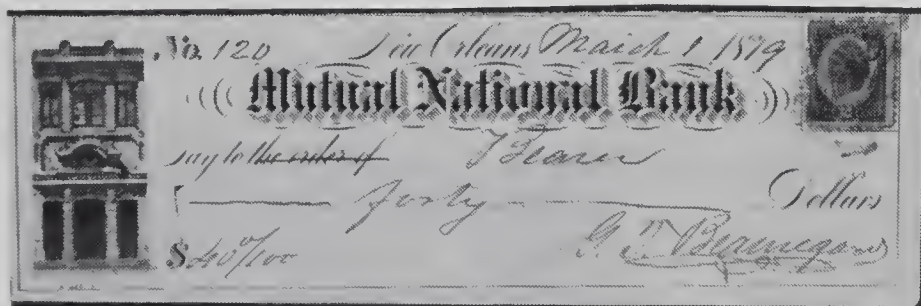 No. 120 New Orleans March 1 1879
Mutual National Bank
Pay to the order of Bearer
forty Dollars
$40 0/100 G. T. Beauregard